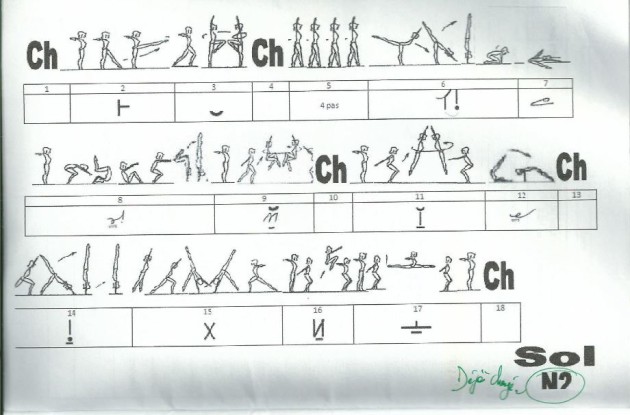 Ch Ch
1 2 3 4 5 6 7
4 pas
Ch Ch
8 9 10 11 12 13
Ch
14 15 16 17 18
Sol
Déjà N2